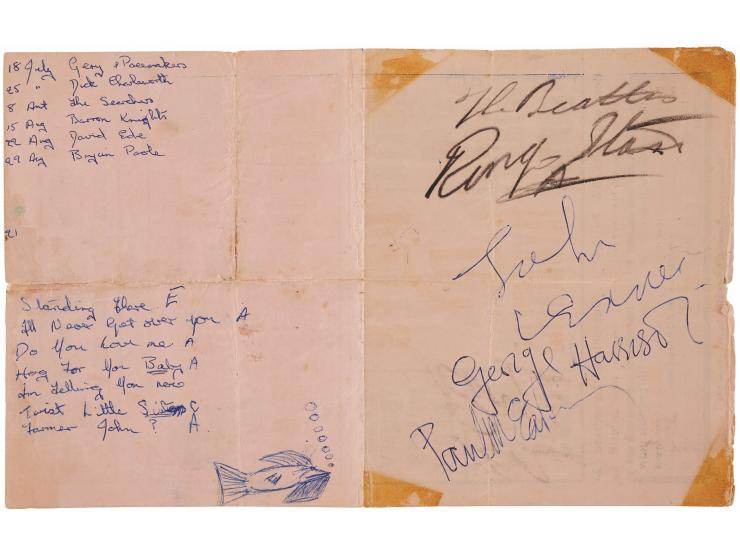 18 July Gerry & Pacemakers
25 " Dick Charlesworth
8 Aut The Searchers
15 Aug Barron Knights
22 Aug David Ede
29 Aug Bryan Poole
21
Standing There E
Ill Never Get over you A
Do You Love me A
Hog For You Baby A
Im Telling You now
Twist Little Sister C
Farmer John ? A
The Beatles
Ringo Starr
John
Lennon
George Harrison
Paul McCartney